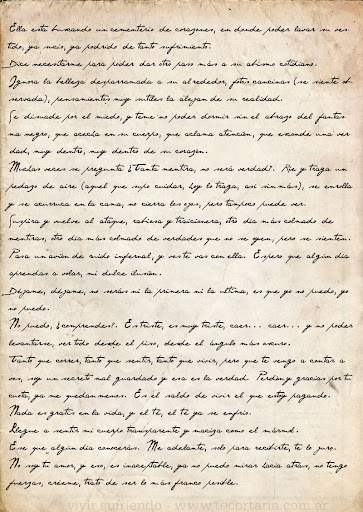 Ella esta buscando un cementerio de corazones, en donde poder lavar su ves
tido, ya sucio, ya podrido de tanto sufrimiento.
Dice necesitarme para poder dar otro paso más a su abismo cotidiano.
Ignora la belleza desparramada a su alrededor, fotos cansinas (se siente ob
servada), pensamientos muy sutiles la alejan de su realidad.
Se desnude por el miedo, y teme no poder dormir sin el abrazo del fantas
ma negro, que acecha en su cuerpo, que aclama atención, que esconde una ver
dad, muy dentro, muy dentro de su corazón.
Muchas veces se pregunta ¿Tanta mentira, no será verdad?. Ríe y traga un
pedazo de aire (aquel que supo cuidar, hoy lo traga, así sin más), se enrolla
y se acurruca en la cama, no cierra los ojos, pero tampoco puede ver.
Suspira y vuelve al ataque, rabiosa y traicionera, otro día más colmado de
mentiras, otro día más colmado de verdades que no se oyen, pero se sienten.
Pasa un avión de ruido infernal, y vos te vas con ella. Espero que algún día
aprendas a volar, mi dulce ilusión.
Déjame, déjame, no serás ni la primera ni la ultima, es que yo no puedo, yo
no puedo.
No puedo, ¿comprendes?. Es triste, es muy triste, caer... caer... y no poder
levantarse, ver todo desde el piso, desde el ángulo más oscuro.
Tanto que correr, tanto que sentir, tanto que vivir, pero que te vengo a contar a
vos, soy un secreto mal guardado y esa es la verdad. Perdón y gracias por tu
cuota, ya me quedan menos. Es el saldo de vivir el que estoy pagando.
Nada es gratis en la vida, y el té, el té ya se enfrío.
Llegue a sentir mi cuerpo transparente y maciza como el mármol.
Ese que algún día conocerás. Me adelante, solo para recibirte, te lo juro.
No soy tu amor, y eso, es inaceptable, ya no puedo mirar hacia atrás, no tengo
fuerzas, créeme, trato de ser lo más franco posible.
vivir sufriendo - www.tecortaria.com.ar